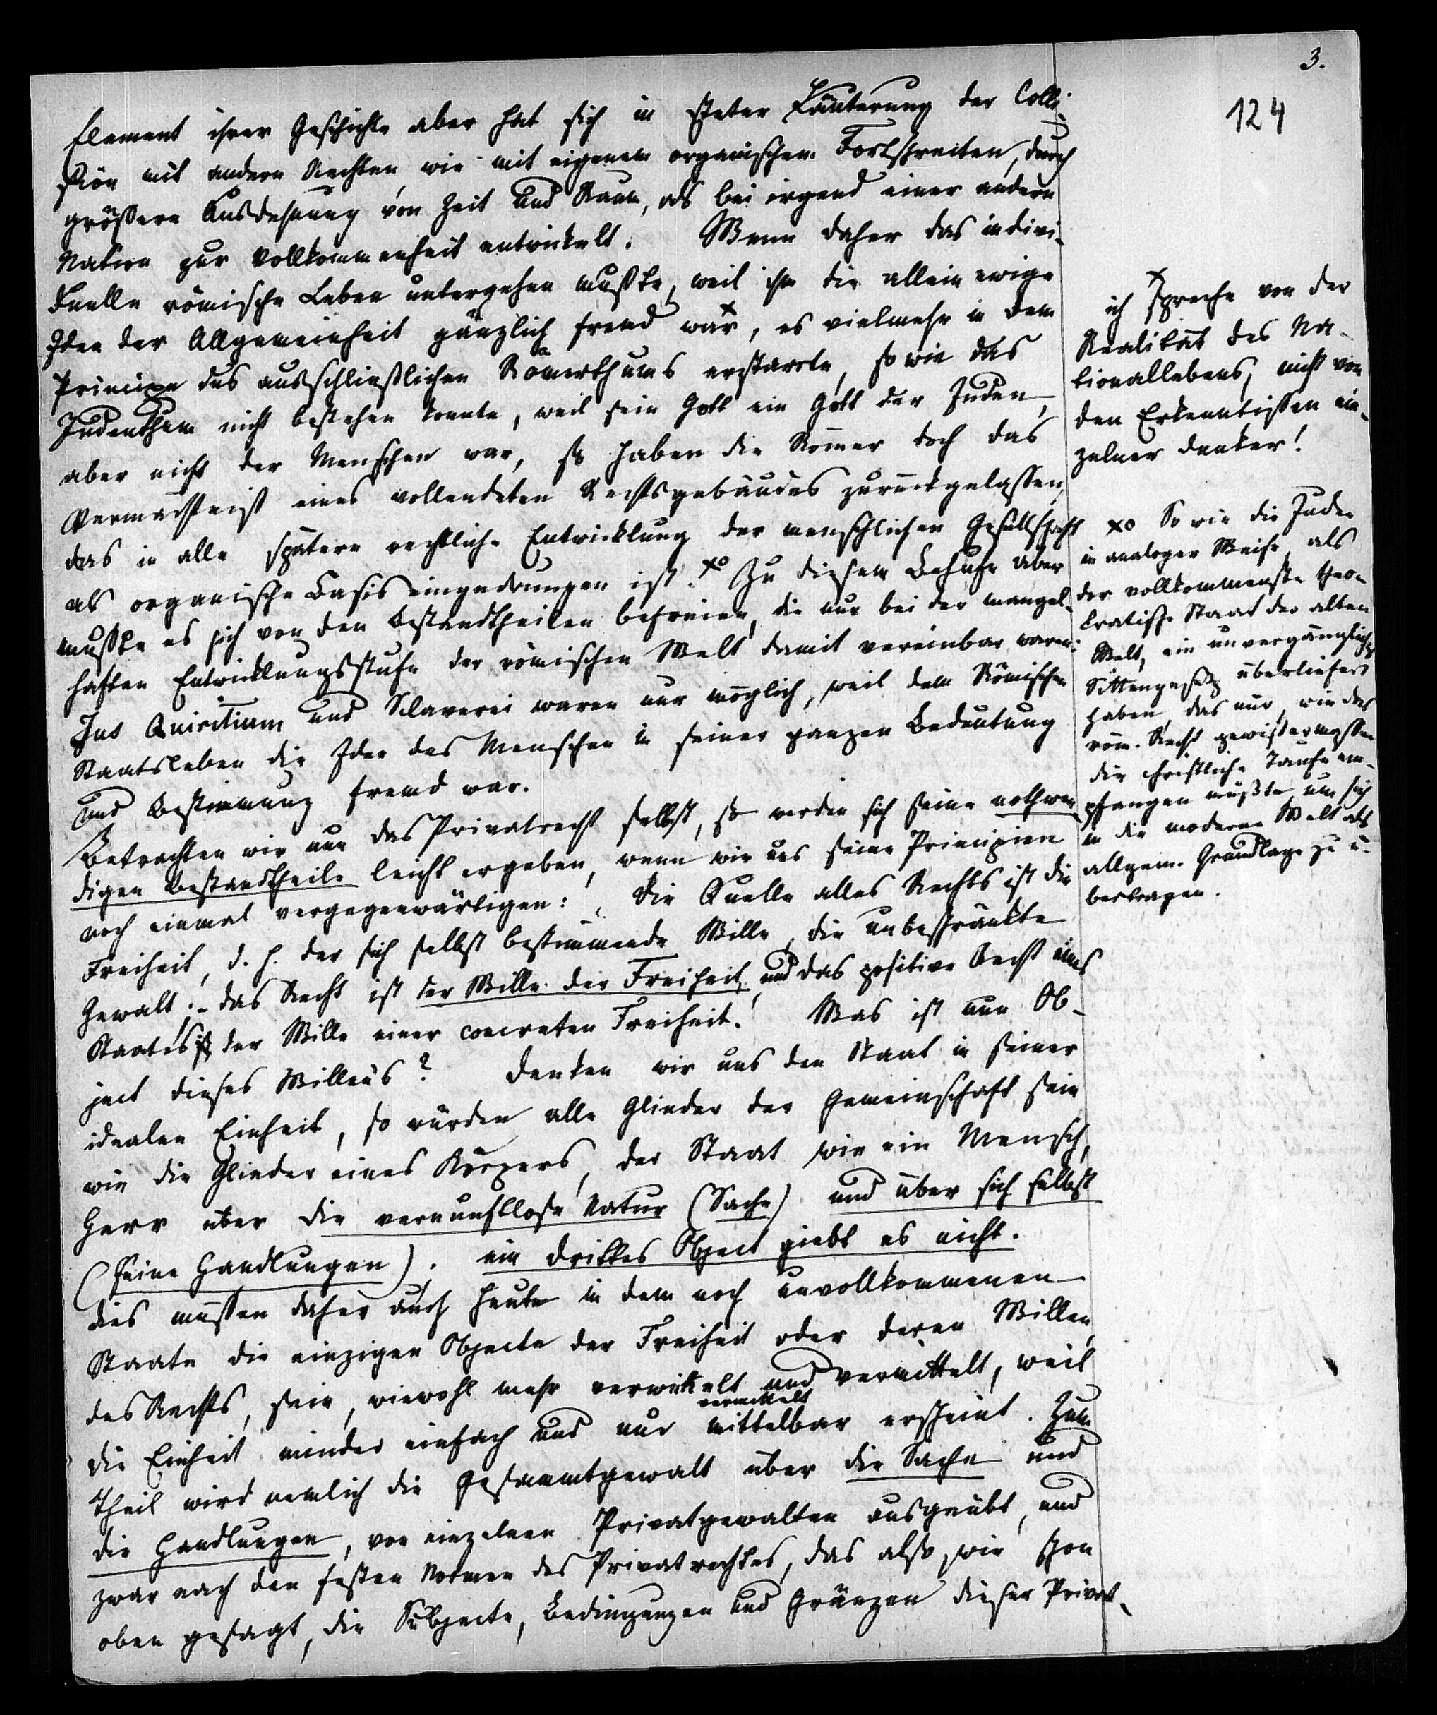 3.
124
Element ihrer Geschichte aber hat sich in steter Läuterung der Colli-
sion mit andern Rechten, wie mit eigenem organischen Fortschreiten, durch
größere Ausdehnung von Zeit und Raum, als bei irgend einer andern
Nation zur Vollkommenheit entwickelt. Wenn daher das indivi-
duelle römische Leben untergehen mußte, weil ihm die allein ewige
Idee der Allgemeinheit gänzlich fremd war x, es vielmehr in dem
Principe des ausschließlichen Römerthums erstarrte, so wie das
Judenthum nicht bestehen konnte, weil sein Gott ein Gott der Juden,
aber nicht der Menschen war, so haben die Römer doch das
Vermächtniß eines vollendeten Rechtsgebäudes zurückgelassen,
das in alle spätere rechtliche Entwicklung der menschlichen Gesellschaft
als organische Basis eingedrungen ist. xo Zu diesem Behufe aber
mußte es sich von den Bestandtheilen befreien, die nur bei der mangel-
haften Entwicklungsstufe der römischen Welt damit vereinbar waren:
Jus Quiritium und Sclaverei waren nur möglich, weil dem Römischen
Staatsleben die Idee des Menschen in seiner ganzen Bedeutung
und Bestimmung fremd war.
Betrachten wir nun das Privatrecht selbst, so werden sich seine nothwen-
digen Bestandtheile leicht ergeben, wenn wir uns seine Principien
noch einmal vergegenwärtigen: Die Quelle alles Rechts ist die
Freiheit, d. h. der sich selbst bestimmende Wille, die unbeschränkte
Gewalt; das Recht ist der Wille der Freiheit, und das positive Recht eines
Staates ist der Wille einer concreten Freiheit. Was ist nun Ob-
ject dieses Willens? Denken wir uns den Staat in seiner
idealen Einheit, so würden alle Glieder der Gemeinschaft sein
wie die Glieder eines Körpers, der Staat wie ein Mensch,
Herr über die vernunftlose Natur (Sache) und über sich selbst
(seine Handlungen). ein drittes Object giebt es nicht.
dies müssen daher auch heute in dem noch unvollkommenen
Staate die einzigen Objecte der Freiheit oder deren Willen,
des Rechts, sein, wiewohl mehr verwickelt und vermittelt, weil
die Einheit minder einfach und nur mittelbar erscheint. Zum
vermittelt
Theil wird nemlich die Gesammtgewalt über die Sache und
die Handlungen, von einzelnen Privatgewalten ausgeübt, und
zwar nach den festen Normen des Privatrechtes, das also, wie schon
oben gesagt, die Subjecte, Bedingungen und Gränzen dieser Privat-
x
ich spreche von der
Realität des Na-
tionallebens, nicht von
den Erkenntnissen ein-
zelner Denker!
xo So wie die Juden
in analoger Weise, als
der vollkommenste theo-
kratische Staat der alten
Welt, ein unvergängliches
Sittengesetz überliefert
haben, das nur, wie das
röm. Recht gewissermaßen
die christliche Taufe em-
pfangen mußte, um sich
in die moderne Welt als
allgem. Grundlage zu ü-
bertragen.